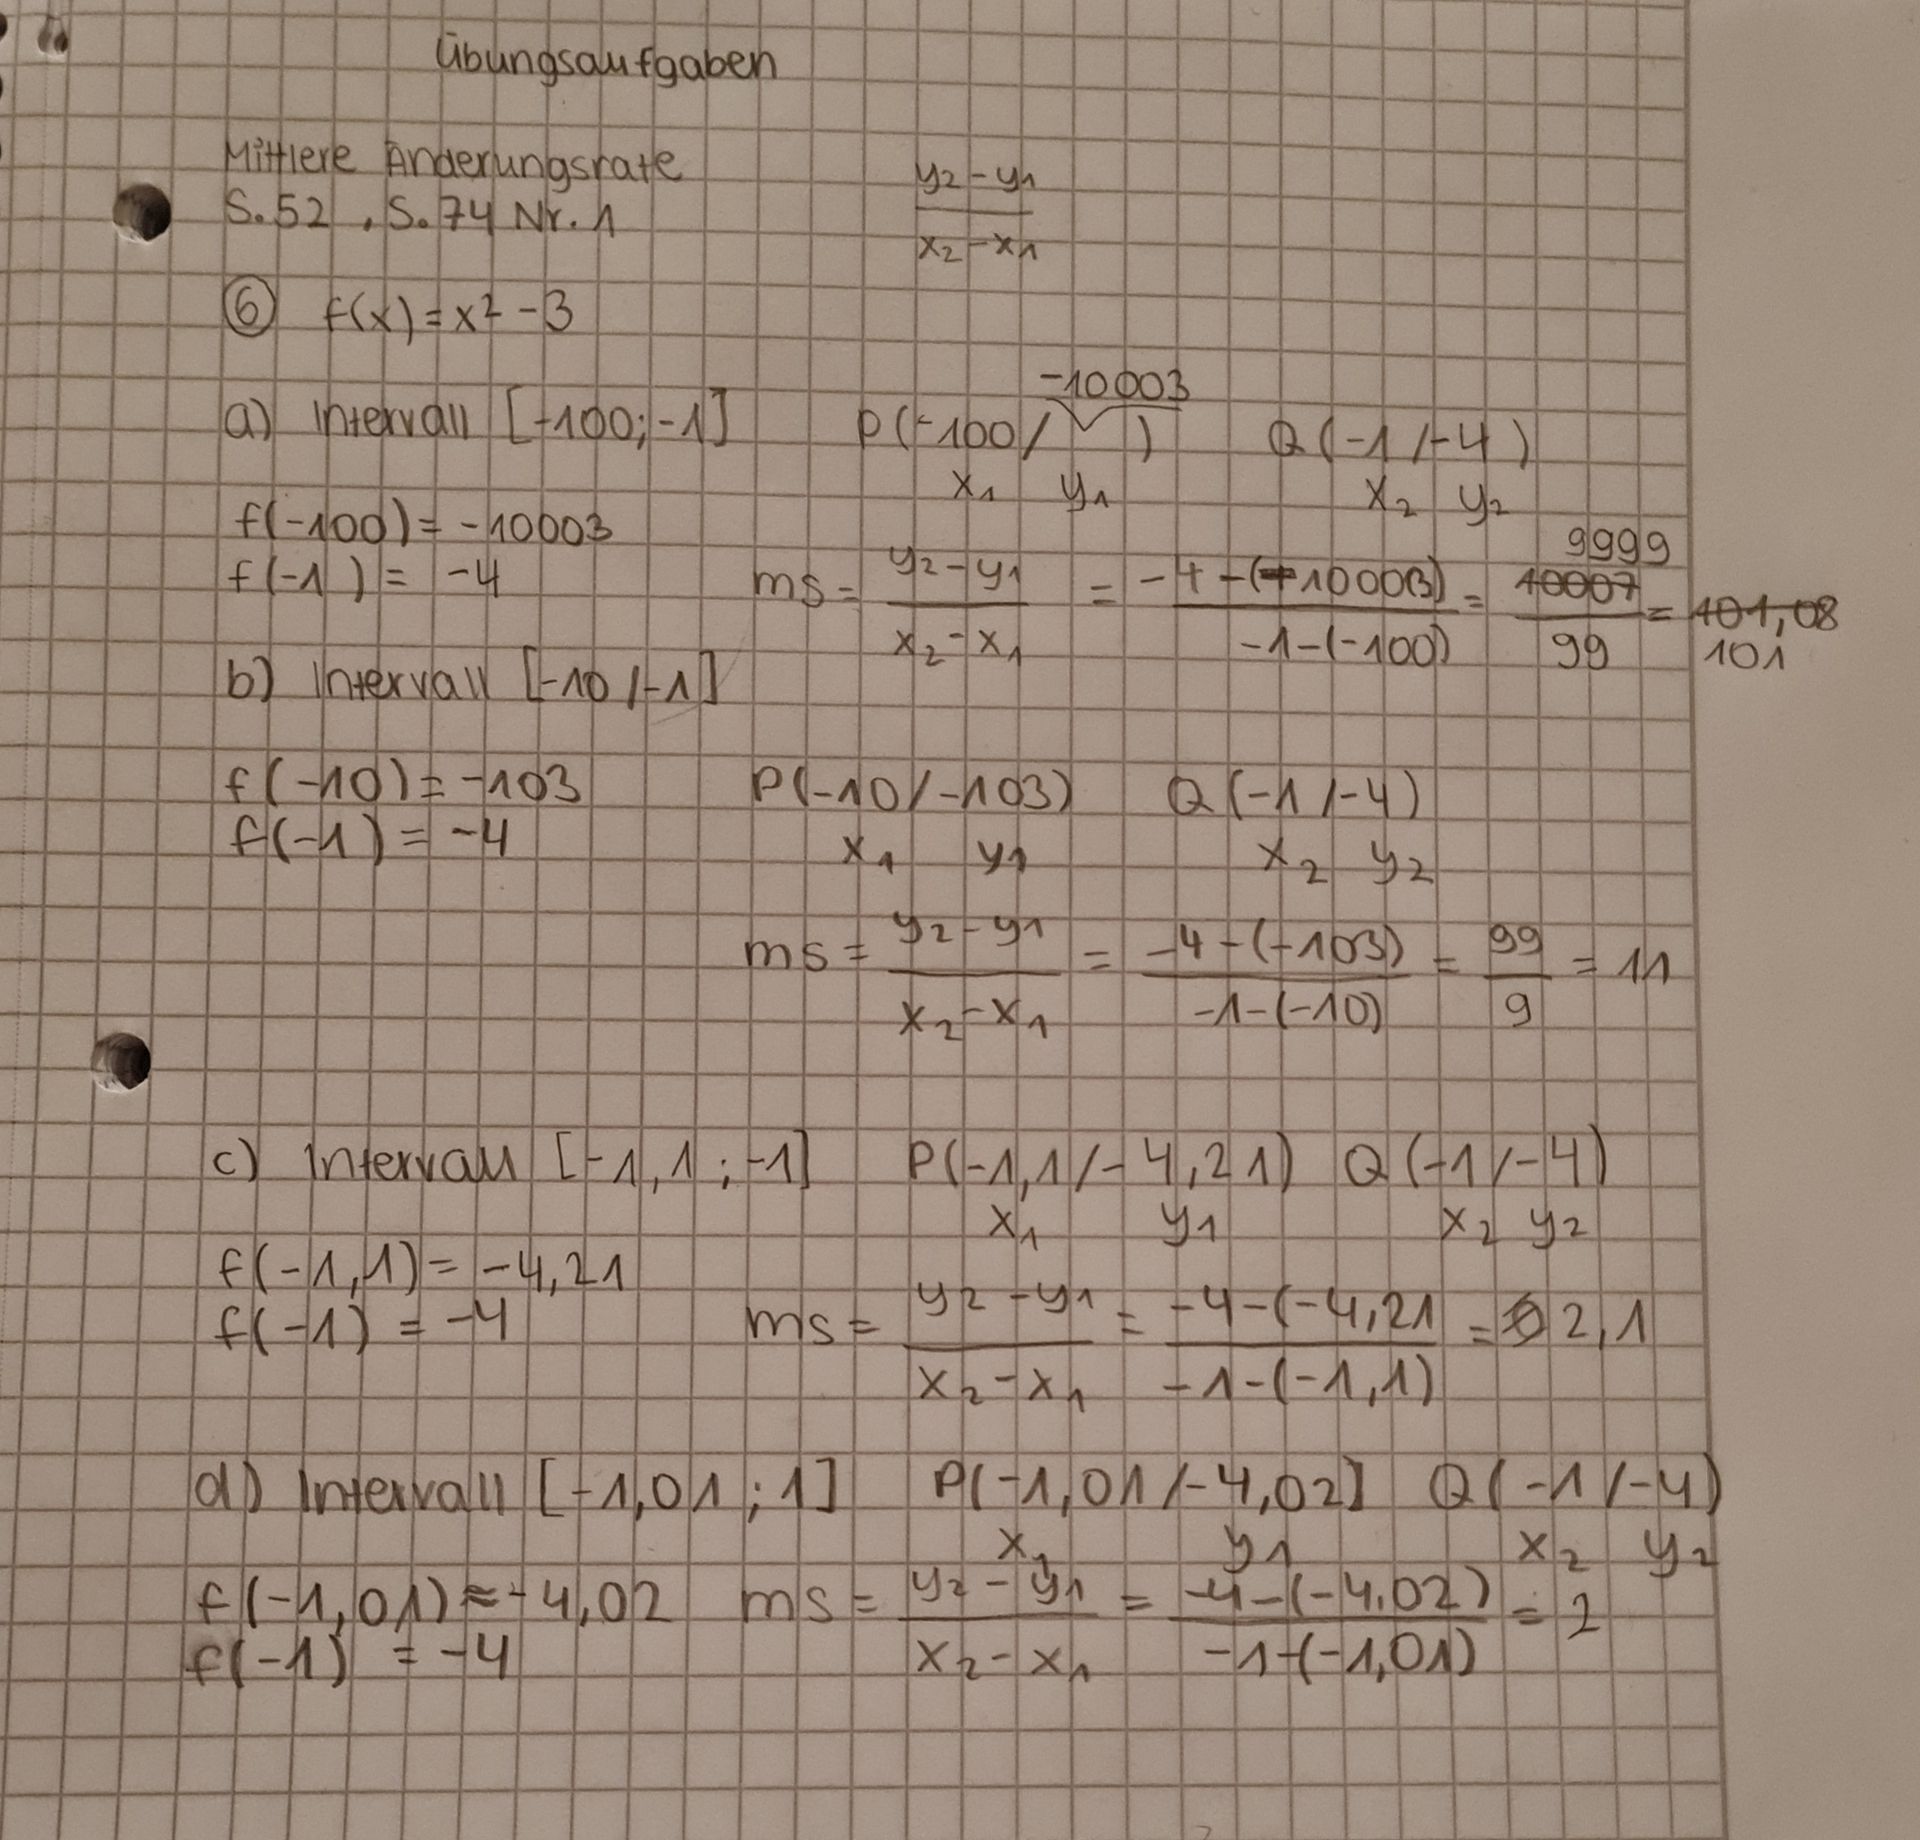 Übungsaufgaben
Mittlere Änderungsrate
S.52 , S.74 Nr. 1
y2-y1
x2-x1
⑥ f(x)=x² -3
a) Intervall [-100;-1] P(-100/ -10003 ) Q(-1/-4)
x1 y1 x2 y2
f(-100)= -10003
f(-1)= -4
ms= y2-y1 / x2-x1 = -4-(-10003) / -1-(-100) = 10007 9999 / 99 = 101,08
101
b) Intervall [-10/-1]
f(-10)= -103 P(-10/-103) Q(-1/-4)
f(-1) = -4 x1 y1 x2 y2
ms= y2-y1 / x2-x1 = -4-(-103) / -1-(-10) = 99 / 9 = 11
c) Intervall [-1,1;-1] P(-1,1/-4,21) Q(-1/-4)
x1 y1 x2 y2
f(-1,1)= -4,21
f(-1) = -4 ms= y2-y1 / x2-x1 = -4-(-4,21 / -1-(-1,1) = 2,1
d) Intervall [-1,01;1] P(-1,01/-4,02] Q(-1/-4)
x1 y1 x2 y2
f(-1,01)≈-4,02 ms= y2-y1 / x2-x1 = -4-(-4,02) / -1-(-1,01) = 2
f(-1) = -4